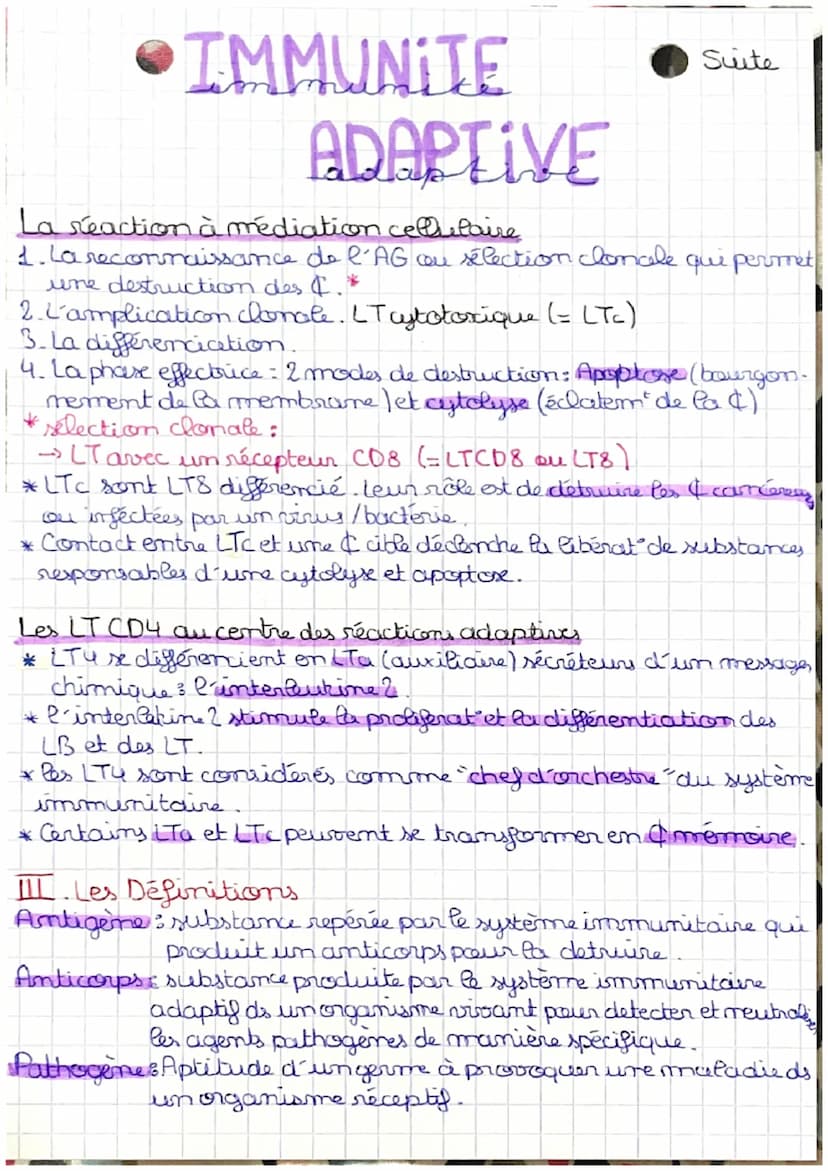 IMMUNITE
immunité
Suite
ADAPTIVE
adaptive
La réaction à médiation cellulaire
1. La reconnaissance de l'AG ou sélection clonale qui permet
une destruction des ¢.*
2. L'amplication clonale. LT cytotoxique (= LTc)
3. La différenciation.
4. La phase effectrice : 2 modes de destruction : Apoptose (bourgon-
nement de la membrane) et cytolyse (éclatemt de la ¢)
* sélection clonale :
→ LT avec un récepteur CD8 (= LTCD8 ou LT8)
* LTc sont LT8 différencié. Leur rôle est de détruire les ¢ cancéreuses
ou inféctées par un virus / bactérie.
* Contact entre LTc et une ¢ cible déclenche la libérat° de substances
responsables d'une cytolyse et apoptose.
Les LT CD4 au centre des réactions adaptives
* LT4 se différencient en LTa (auxiliaire) sécréteurs d'un message
chimique : l'interleukine 2.
* l'interlekine 2 stimule la proliferat° et la différentiation des
LB et des LT.
* Les LT4 sont considérés comme "chef d'orchestre" du système
immunitaire.
* Certains LTa et LTc peuvent se transformer en ¢ mémoire.
III. Les Définitions
Antigène : substance repérée par le système immunitaire qui
produit un anticorps pour la detruire.
Anticorps : substance produite par le système immunitaire
adaptif ds un organisme vivant pour detecter et neutraliser
les agents pathogènes de manière spécifique.
Pathogène : Aptitude d'un germe à provoquer une maladie ds
un organisme réceptif.